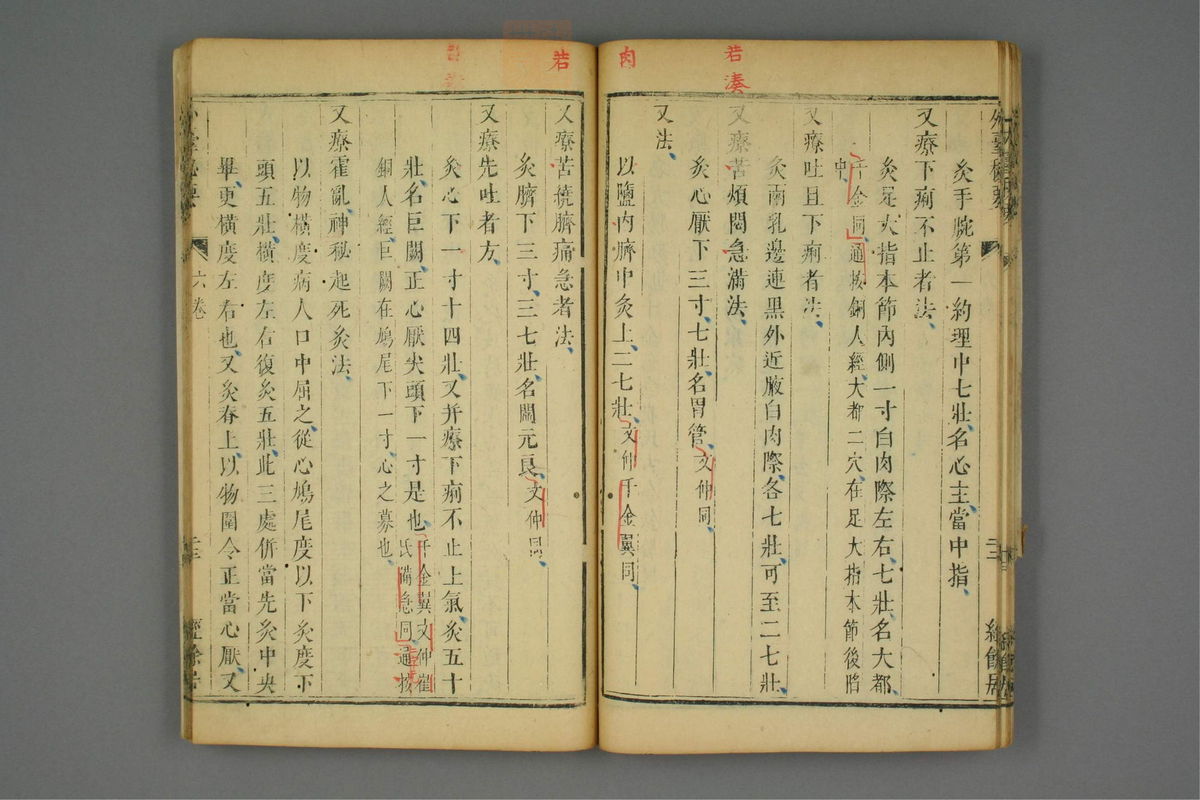 若湊
肉
灸手腕第一約理中七壯名心主當中指
又療下痢不止者法
灸足大指本節內側一寸白肉際左右七壯名大都
千金同通按銅人經大都二穴在足大指本節後陷
中
又療吐且下痢者法
灸兩乳邊連黑外近腋白肉際各七壯可至二七壯
又療苦煩悶急滿法
灸心厭下三寸七壯名胃管文仲同
又法
以鹽內臍中灸上二七壯文仲千金翼同
若
又療苦繞臍痛急者法
灸臍下三寸三七壯名關元良文仲同
又療先吐者方
灸心下一寸十四壯又并療下痢不止上氣灸五十
壯名巨闕正心厭尖頭下一寸是也千金翼文仲崔
氏備急同通按
銅人經巨闕在鳩尾下一寸心之募也
又療霍亂神秘起死灸法
以物橫度病人口中屈之從心鳩尾度以下灸度下
頭五壯橫度左右復灸五壯此三處併當先灸中央
畢更橫度左右也又灸脊上以物圍令正當心厭又
六卷
經餘居